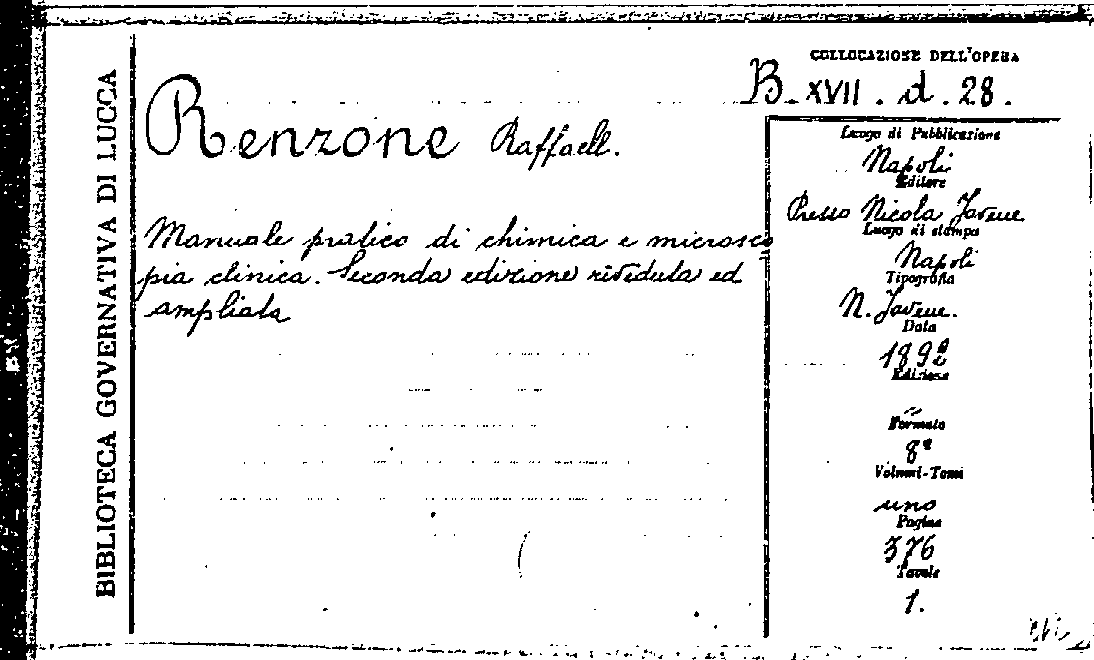 BIBLIOTECA GOVERNATIVA DI LUCCA
COLLOCAZIONE DELL'OPERA
B. XVII. d. 28.
Renzone Raffaell.
Manuale pratico di chimica e microsco
pia clinica. Seconda edizione riveduta ed
ampliata
Luogo di Pubblicazione
Napoli
Editore
Presso Nicola Jovene
Luogo di stampa
Napoli
Tipografia
N. Jovene.
Data
1892
Edizione
Formato
8°
Volumi-Tomi
uno
Pagine
376
Tavole
1.